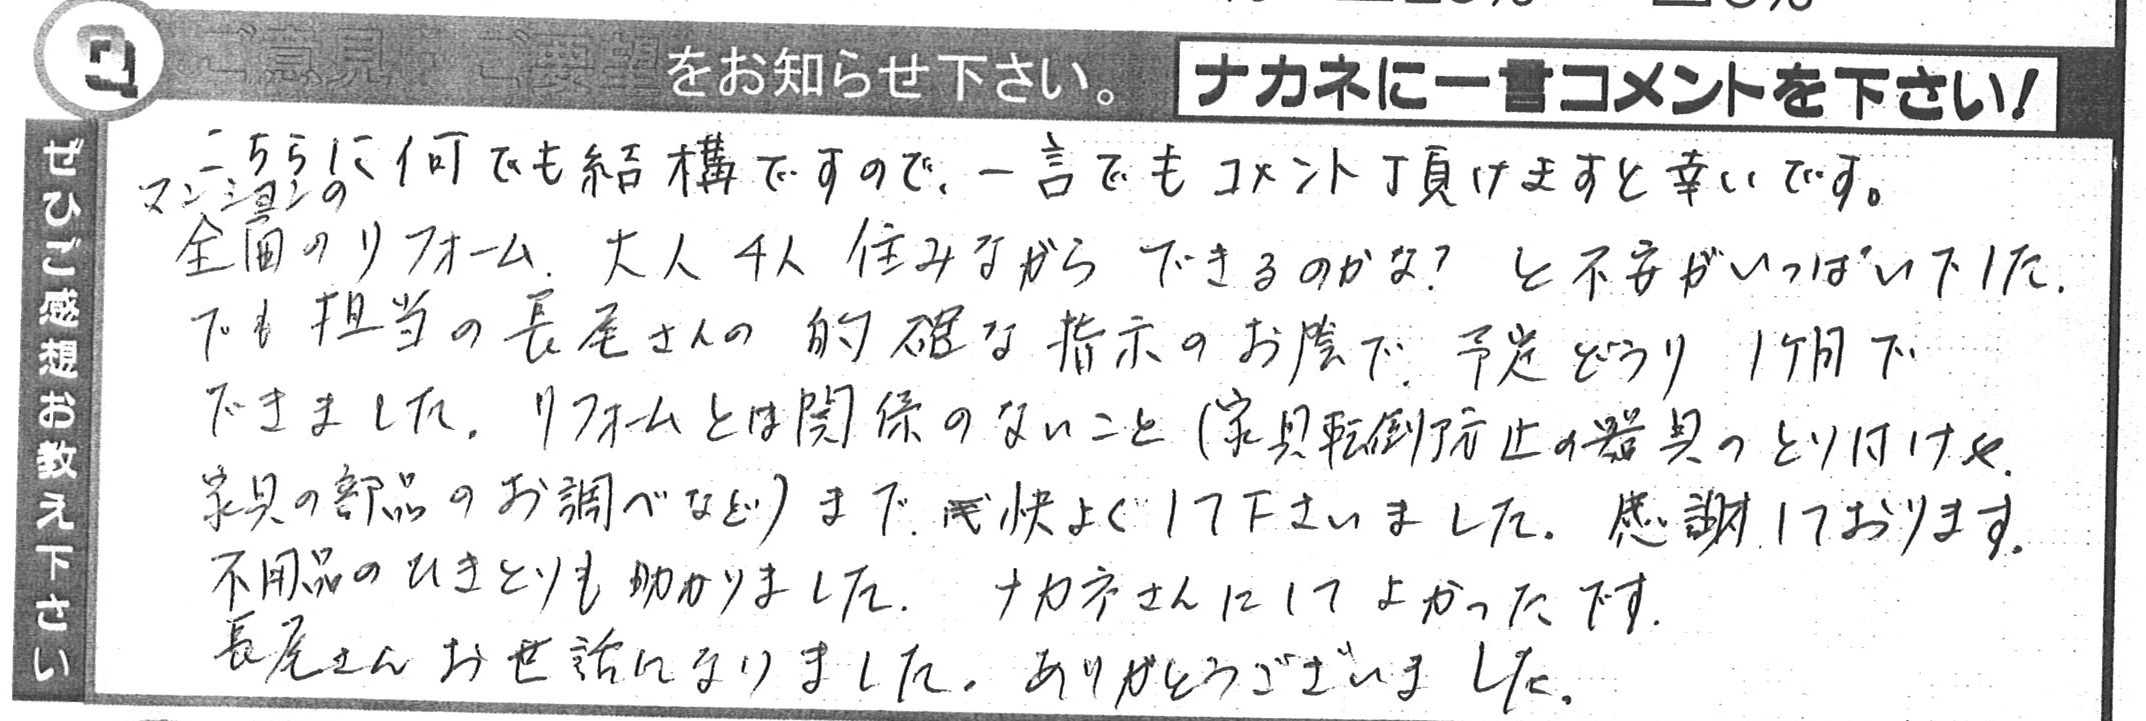 ご意見・ご要望をお知らせ下さい。
ナカネに一言コメントを下さい!
ぜひご感想お教え下さい
こちらに何でも結構ですので、一言でもコメント頂けますと幸いです。
マンションの
全面のリフォーム、大人4人住みながらできるのかな?と不安がいっぱいでした.
でも担当の長尾さんの的確な指示のお陰で、予定どうり1ケ月で
できました。リフォームとは関係のないこと(家具転倒防止の器具のとり付けや、
家具の部品のお調べなど)まで、快よくして下さいました。感謝しております。
不用品のひきとりも助かりました。ナカネさんにしてよかったです.
長尾さんお世話になりました。ありがとうございました。